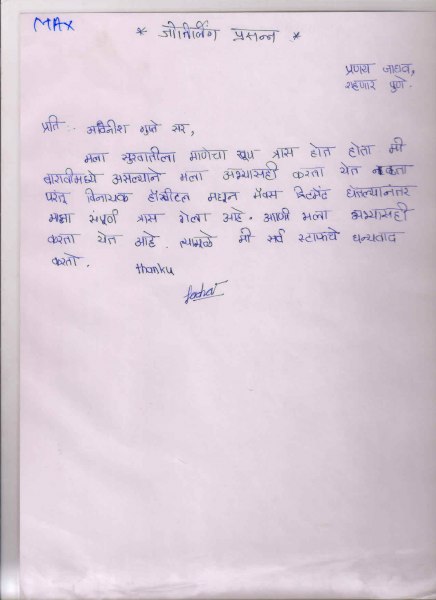 MAX
* जोतिर्लिंग प्रसन्न *
प्रणय जाधव,
राहणार पुणे.
प्रति :- अविनीश गुप्ते सर,
मला सुरवातीला माणेचा खूप त्रास होत होता मी
बारावीमध्ये असल्याने मला अभ्यासही करता येत नव्हता
परंतू विनायक हॉस्पीटल मधून मॅक्स ट्रिटमेंट घेतल्यानंतर
माझा संपूर्ण त्रास गेला आहे. आणी मला अभ्यासही
करता येत आहे. त्यामुळे मी सर्व स्टाफचे धन्यवाद
करतो.
thanku